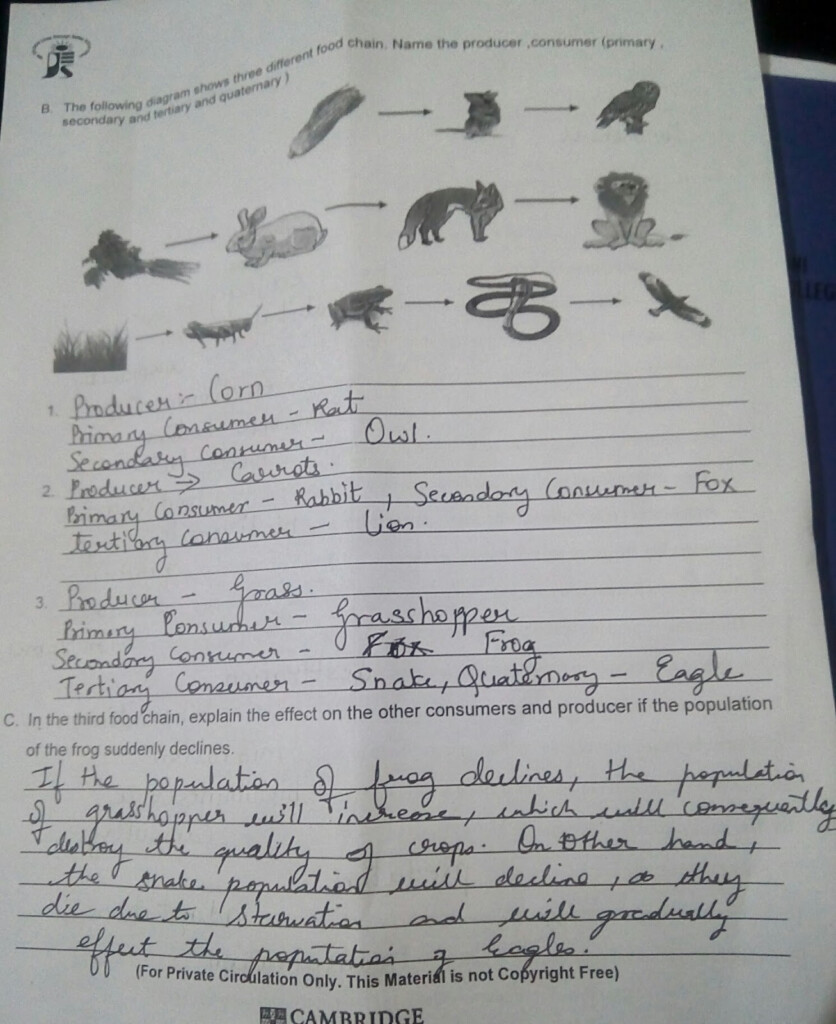 B. The following diagram shows three different food chain. Name the producer ,consumer (primary ,
secondary and tertiary and quaternary )
1. Producer:- Corn
Primary Consumer - Rat
Secondary Consumer - Owl.
2. Producer → Carrots.
Primary Consumer - Rabbit , Secondary Consumer - Fox
Tertiary Consumer - Lion.
3. Producer - Grass.
Primary Consumer - Grasshopper
Secondary Consumer - Frog
Tertiary Consumer - Snake, Quaternary - Eagle
C. In the third food chain, explain the effect on the other consumers and producer if the population
of the frog suddenly declines.
If the population of frog declines, the population
of grasshopper will increase, which will consequently
destroy the quality of crops. On Other hand,
the snake population will decline, as they
die due to Starvation and will gradually
effect the population of Eagles.
(For Private Circulation Only. This Material is not Copyright Free)
CAMBRIDGE